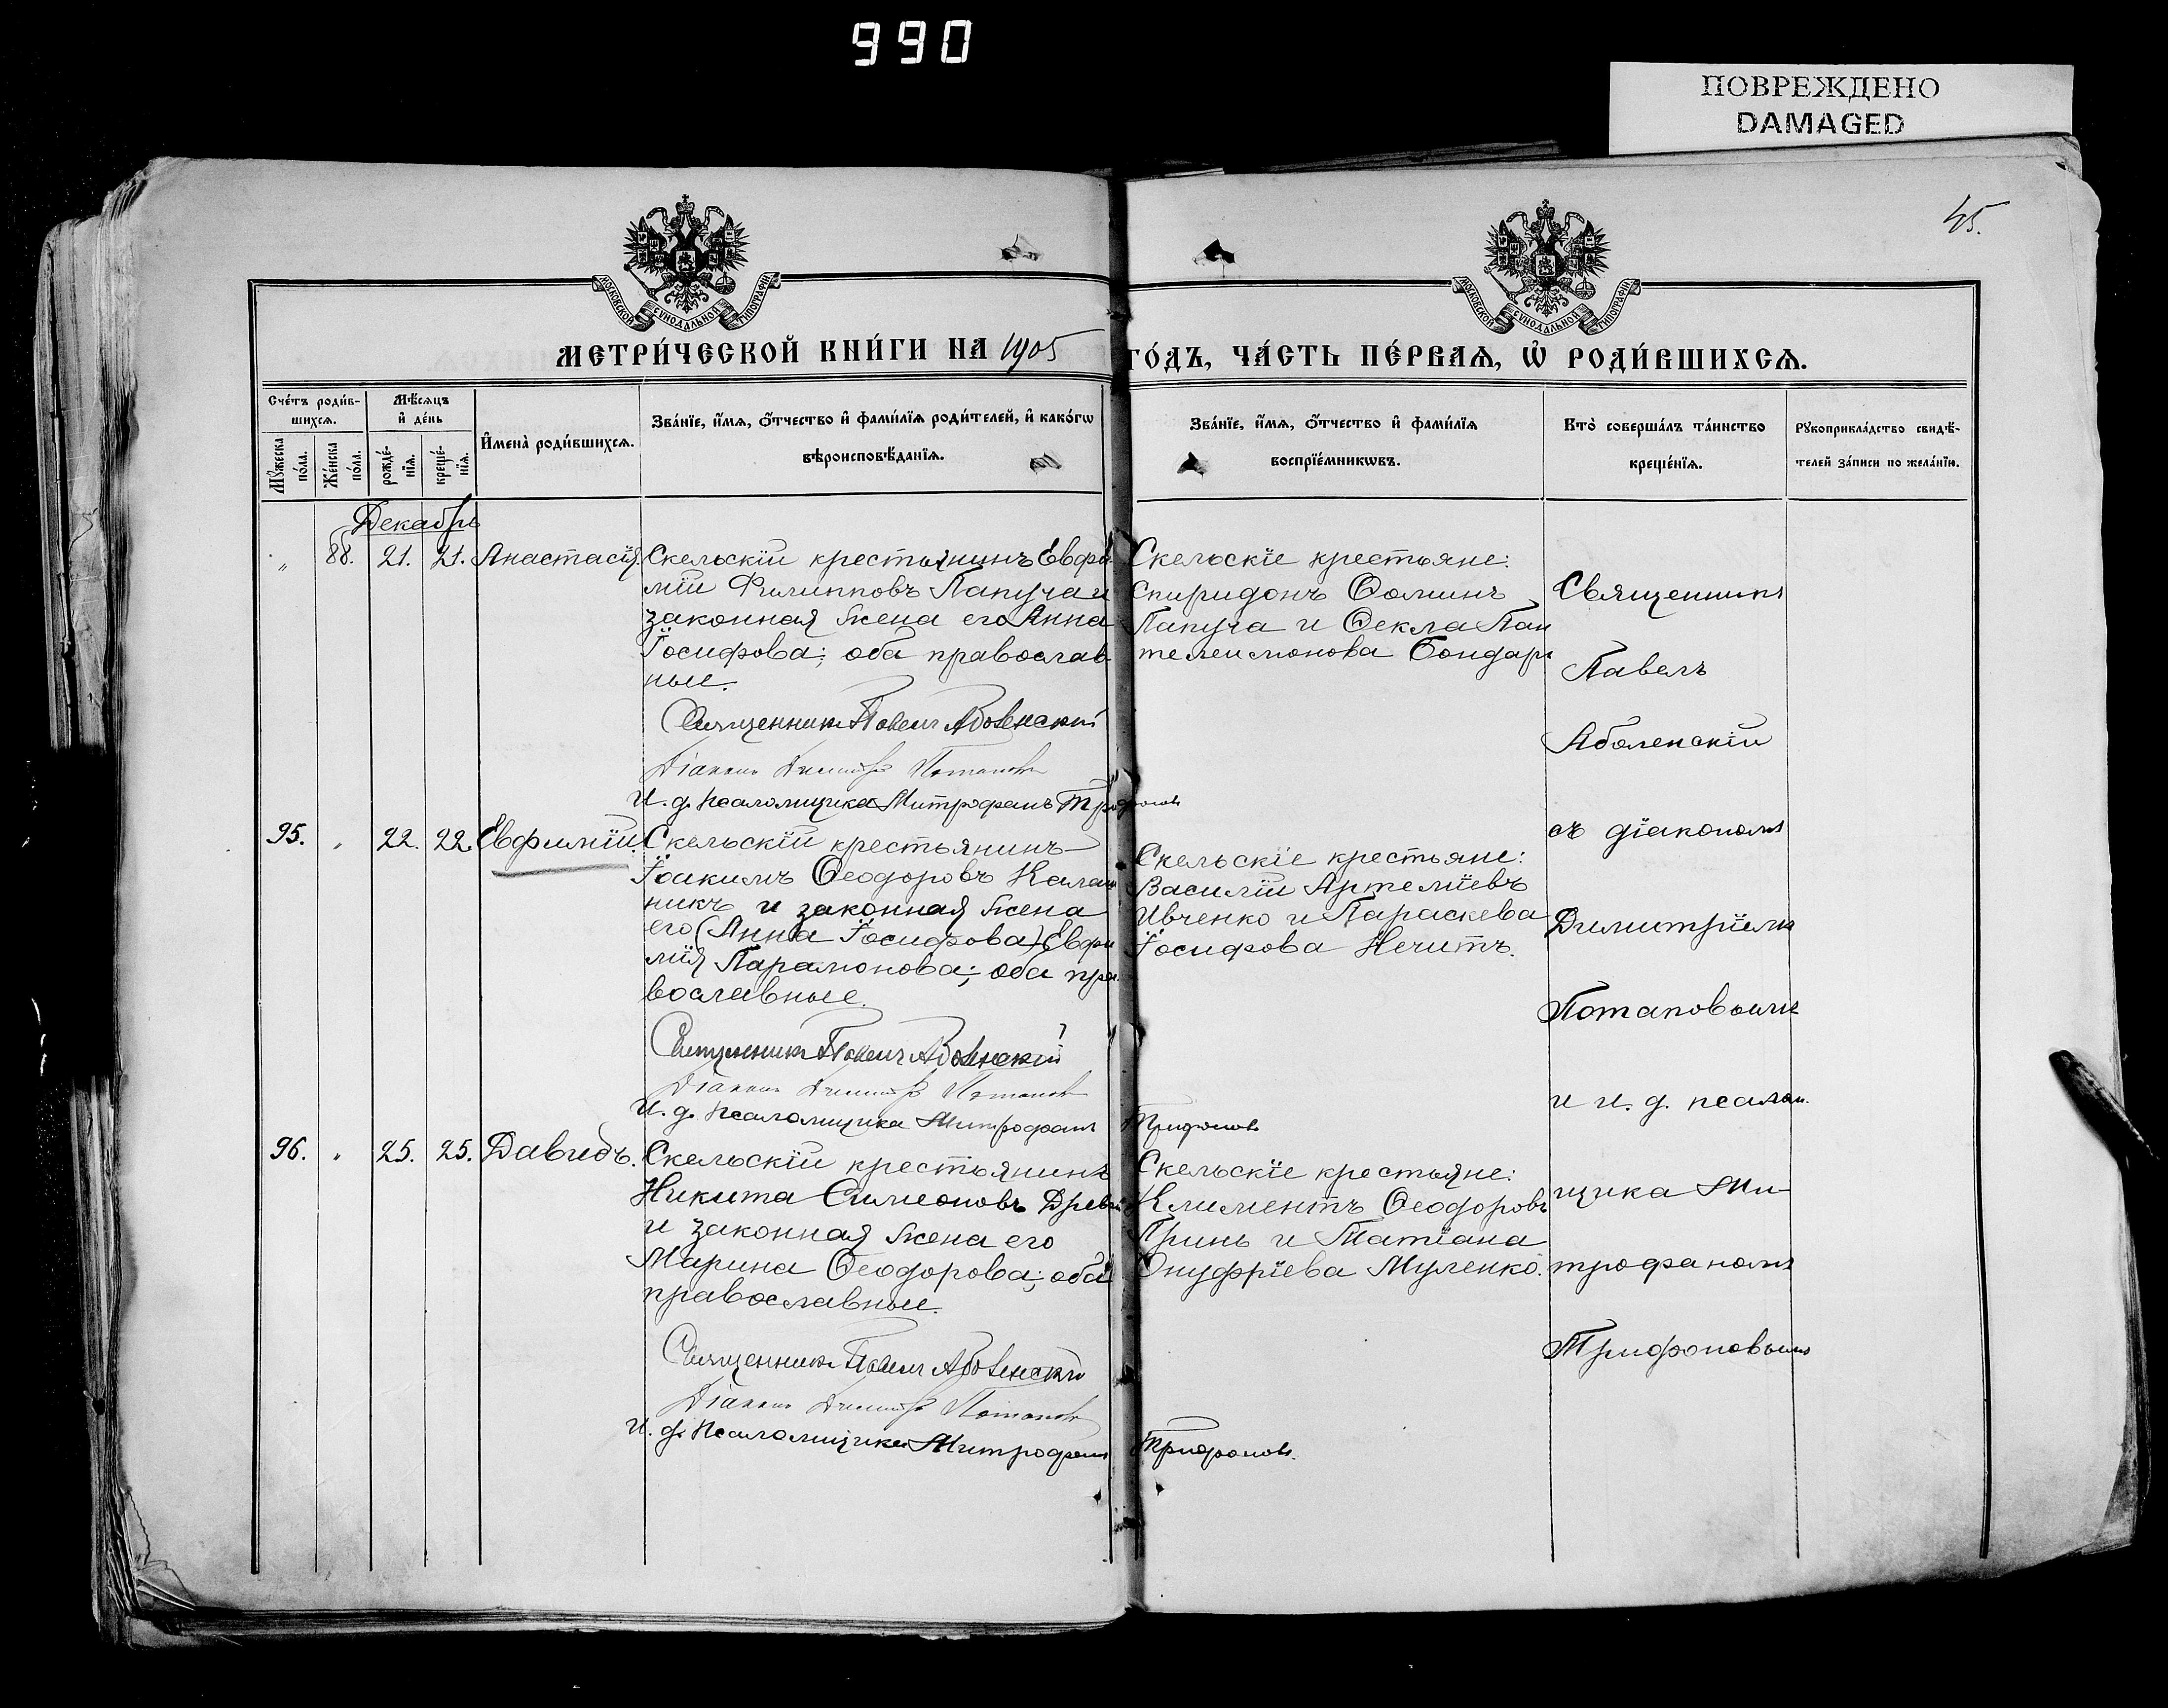 990
ПОВРЕЖДЕНО
DAMAGED
45.
МОСКОВСКОЙ СѴНОДАЛЬНОЙ ТИПОГРАФІИ
МОСКОВСКОЙ СѴНОДАЛЬНОЙ ТИПОГРАФІИ
МЕТРИ́ЧЕСКОЙ КНИ́ГИ НА 1905 ГО́ДЪ, ЧА́СТЬ ПЕ́РВАѦ, Ѡ҆ РОДИ́ВШИХСѦ.
Сче́тъ роди́в-
шихсѧ.
Мꙋ́жеска по́ла.
Же́нска по́ла.
Мѣ́сѧцъ и҆ де́нь
рожде́-нїѧ.
креще́-нїѧ.
И҆мена̀ роди́вшихсѧ.
Зва́нїе, и҆́мѧ, ѻ҆́тчество и҆ фами́лїѧ роди́телей, и҆ како́гѡ
вѣроисповѣ́данїѧ.
Зва́нїе, и҆́мѧ, ѻ҆́тчество и҆ фами́лїѧ
воспрїе́мникѡвъ.
Кто̀ соверша́лъ та́инство
креще́нїѧ.
Рꙋкоприкла́дство свидѣ́-
телей за́писи по жела́нїю.
Декабрь
" 88. 21. 21. Анастасія. Скельскій крестьянинъ Евфи
мій Филипповъ Папуча и
законная жена его Анна
Іосифова; оба православ
ные.
Священникъ Павелъ Аболенскій
Діаконъ Димитрій Потаповъ
И. д. псаломщика Митрофанъ Трифоновъ
Скельскіе крестьяне:
Спиридонъ Ѳоминъ
Папуча и Ѳекла Пан
телеимонова Бондарь
95. " 22. 22. Евфимій. Скельскій крестьянинъ
Іоакимъ Ѳеодоровъ
никъ и законная жена
его (Анна Іосифова) Евфи
мія Парамонова; оба пра
вославные.
Священникъ Павелъ Аболенскій
Діаконъ Димитрій Потаповъ
И. д. псаломщика Митрофанъ Трифоновъ
Скельскіе крестьяне:
Василій Артеміевъ
Ивченко и Параскева
Іосифова Нечитъ.
96. " 25. 25. Давидъ. Скельскій крестьянинъ
Никита Симеоновъ
и законная жена его
Марина Ѳеодорова; оба
православные.
Священникъ Павелъ Аболенскій
Діаконъ Димитрій Потаповъ
И. д. псаломщика Митрофанъ Трифоновъ.
Скельскіе крестьяне:
Климентъ Ѳеодоровъ
Гринь и Татіана
Онуфріева Муленко.
Священникъ
Павелъ
Аболенскій
съ діакономъ
Димитріемъ
Потаповымъ
и и. д. псалом.
щика Ми
трофаномъ
Трифоновымъ